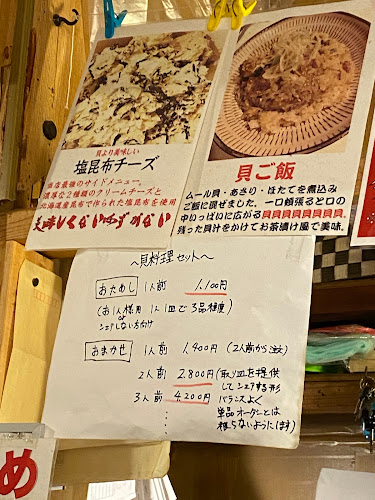 貝より美味しい
塩昆布チーズ
当店最強のサイドメニュー
濃厚な2種類のクリームチーズと
北海道産昆布で作られた塩昆布を使用
美味しくないはずがない
貝ご飯
ムール貝・あさり・ほたてを煮込み
ご飯に混ぜました、一口頬張ると口の
中いっぱいに広がる貝貝貝貝貝貝貝貝。
残った貝汁をかけてお茶漬け風で美味。
〜貝料理セット〜
おためし 1人前 1,100円
(お1人様用 1人1皿で3品程度)
or
シェアしない方向け
おまかせ 1人前 1,400円 (2人前から注文)
2人前 2,800円 (取り皿を提供
してシェアする形
3人前 4,200円 バランスよく
単品オーダーとは
被らないようにします)
め